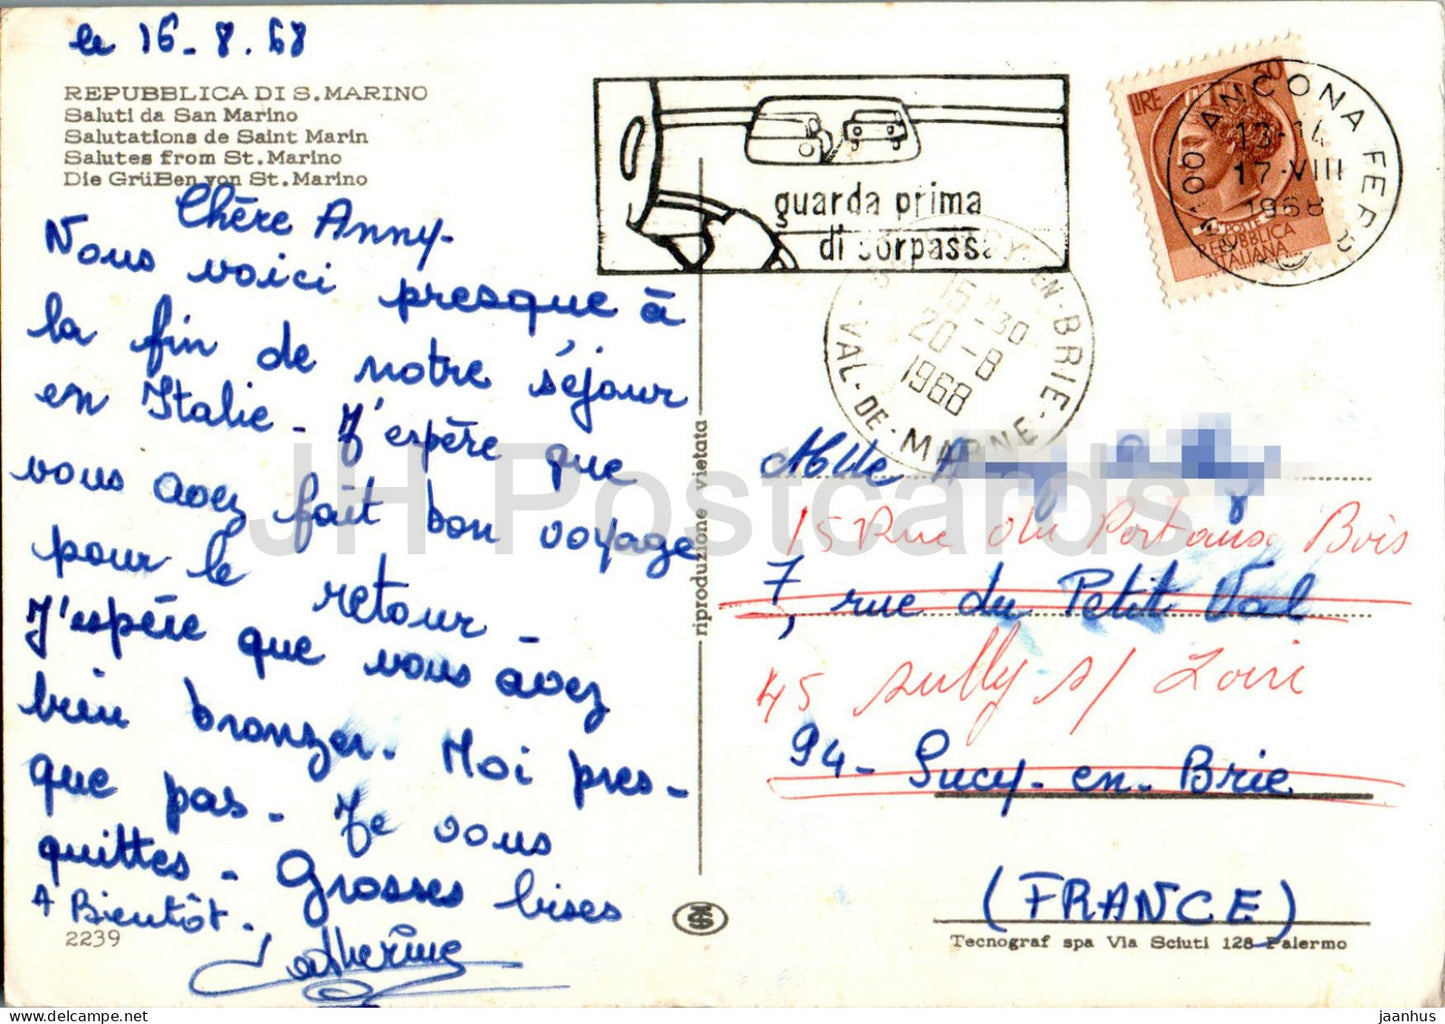 le 16-8.68
REPUBBLICA DI S.MARINO
Saluti da San Marino
Salutations de Saint Marin
Salutes from St.Marino
Die GrüBen von St.Marino
Chère Anny-
Nous voici presque à
la fin de notre séjour
en Italie - J'espère que
vous avez fait bon voyage
pour le retour -
J'espère que vous avez
bien bronzer. Moi pres-
que pas. Je vous
quittes - Grosses bises
A Bientôt.
Catherine
2239
riproduzione vietata
guarda prima
di sorpassa
LIRE 30
POSTE
REPUBBLICA
ITALIANA
ANCONA FERR
13-14
17-VIII
1968
SUCY-EN-BRIE
15H30
20-8
1968
VAL-DE-MARNE
Mlle A
15 Rue du Bois
7, rue du Petit Val
45 Sully s/ Loire
94- Sucy-en-Brie
(FRANCE)
Tecnograf spa Via Sciuti 128-Palermo
JH Postcards
jaanhus